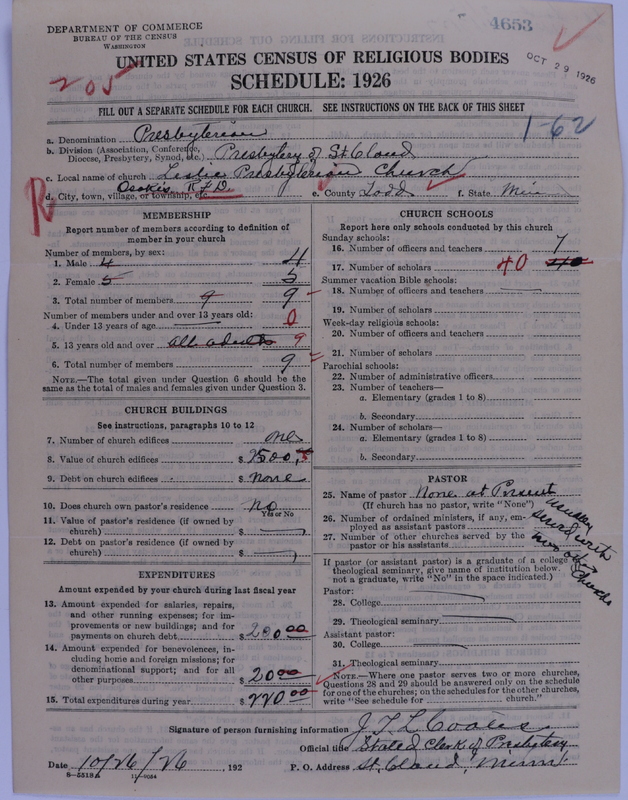 DEPARTMENT OF COMMERCE
BUREAU OF THE CENSUS
WASHINGTON
4653
OCT 29 1926
UNITED STATES CENSUS OF RELIGIOUS BODIES
205
SCHEDULE: 1926
FILL OUT A SEPARATE SCHEDULE FOR EACH CHURCH. SEE INSTRUCTIONS ON THE BACK OF THIS SHEET
1-62
a. Denomination Presbyterian
b. Division (Association, Conference, Diocese, Presbytery, Synod, etc.) Presbytery of St Cloud
c. Local name of church Leslie Presbyterian Church
d. City, town, village, or township, etc. Osakis R.F.D. e. County Todd f. State Min
R
MEMBERSHIP
Report number of members according to definition of
member in your church
Number of members, by sex:
1. Male 4 4
2. Female 5 5
3. Total number of members 9 9
Number of members under and over 13 years old:
4. Under 13 years of age 0
5. 13 years old and over all adults 9
6. Total number of members 9
NOTE.—The total given under Question 6 should be
same as the total of males and females given under Question 3.
CHURCH BUILDINGS
See instructions, paragraphs 10 to 12
7. Number of church edifices one
8. Value of church edifices $ 2500
9. Debt on church edifices $ none
10. Does church own pastor's residence no
Yes or No
11. Value of pastor's residence (if owned by
church) $
12. Debt on pastor's residence (if owned by
church) $
EXPENDITURES
Amount expended by your church during last fiscal year
13. Amount expended for salaries, repairs,
and other running expenses; for im-
provements or new buildings; and for
payments on church debt $ 200.00
14. Amount expended for benevolences, in-
cluding home and foreign missions; for
denominational support; and for all
other purposes $ 20.00
15. Total expenditures during year $ 220.00
CHURCH SCHOOLS
Report here only schools conducted by this church
Sunday schools:
16. Number of officers and teachers 7
17. Number of scholars 40 40
Summer vacation Bible schools:
18. Number of officers and teachers
19. Number of scholars
Week-day religious schools:
20. Number of officers and teachers
21. Number of scholars
Parochial schools:
22. Number of administrative officers
23. Number of teachers—
a. Elementary (grades 1 to 8)
b. Secondary
24. Number of scholars—
a. Elementary (grades 1 to 8)
b. Secondary
PASTOR
25. Name of pastor None at Present
(If church has no pastor, write "None")
usually served with two other Churches
26. Number of ordained ministers, if any, em-
ployed as assistant pastors
27. Number of other churches served by the
pastor or his assistants
If pastor (or assistant pastor) is a graduate of a college or
theological seminary, give name of institution below. (If
not a graduate, write "No" in the space indicated.)
Pastor:
28. College
29. Theological seminary
Assistant pastor:
30. College
31. Theological seminary
NOTE.—Where one pastor serves two or more churches,
Questions 28 and 29 should be answered only on the schedule
for one of the churches; on the schedules for the other churches,
write "See schedule for church."
Signature of person furnishing information J. T. L. Coates
Official title Stated Clerk of Presbytery
Date 10/26/26, 192 P. O. Address St. Cloud, Minn
8—5518a 11—9054